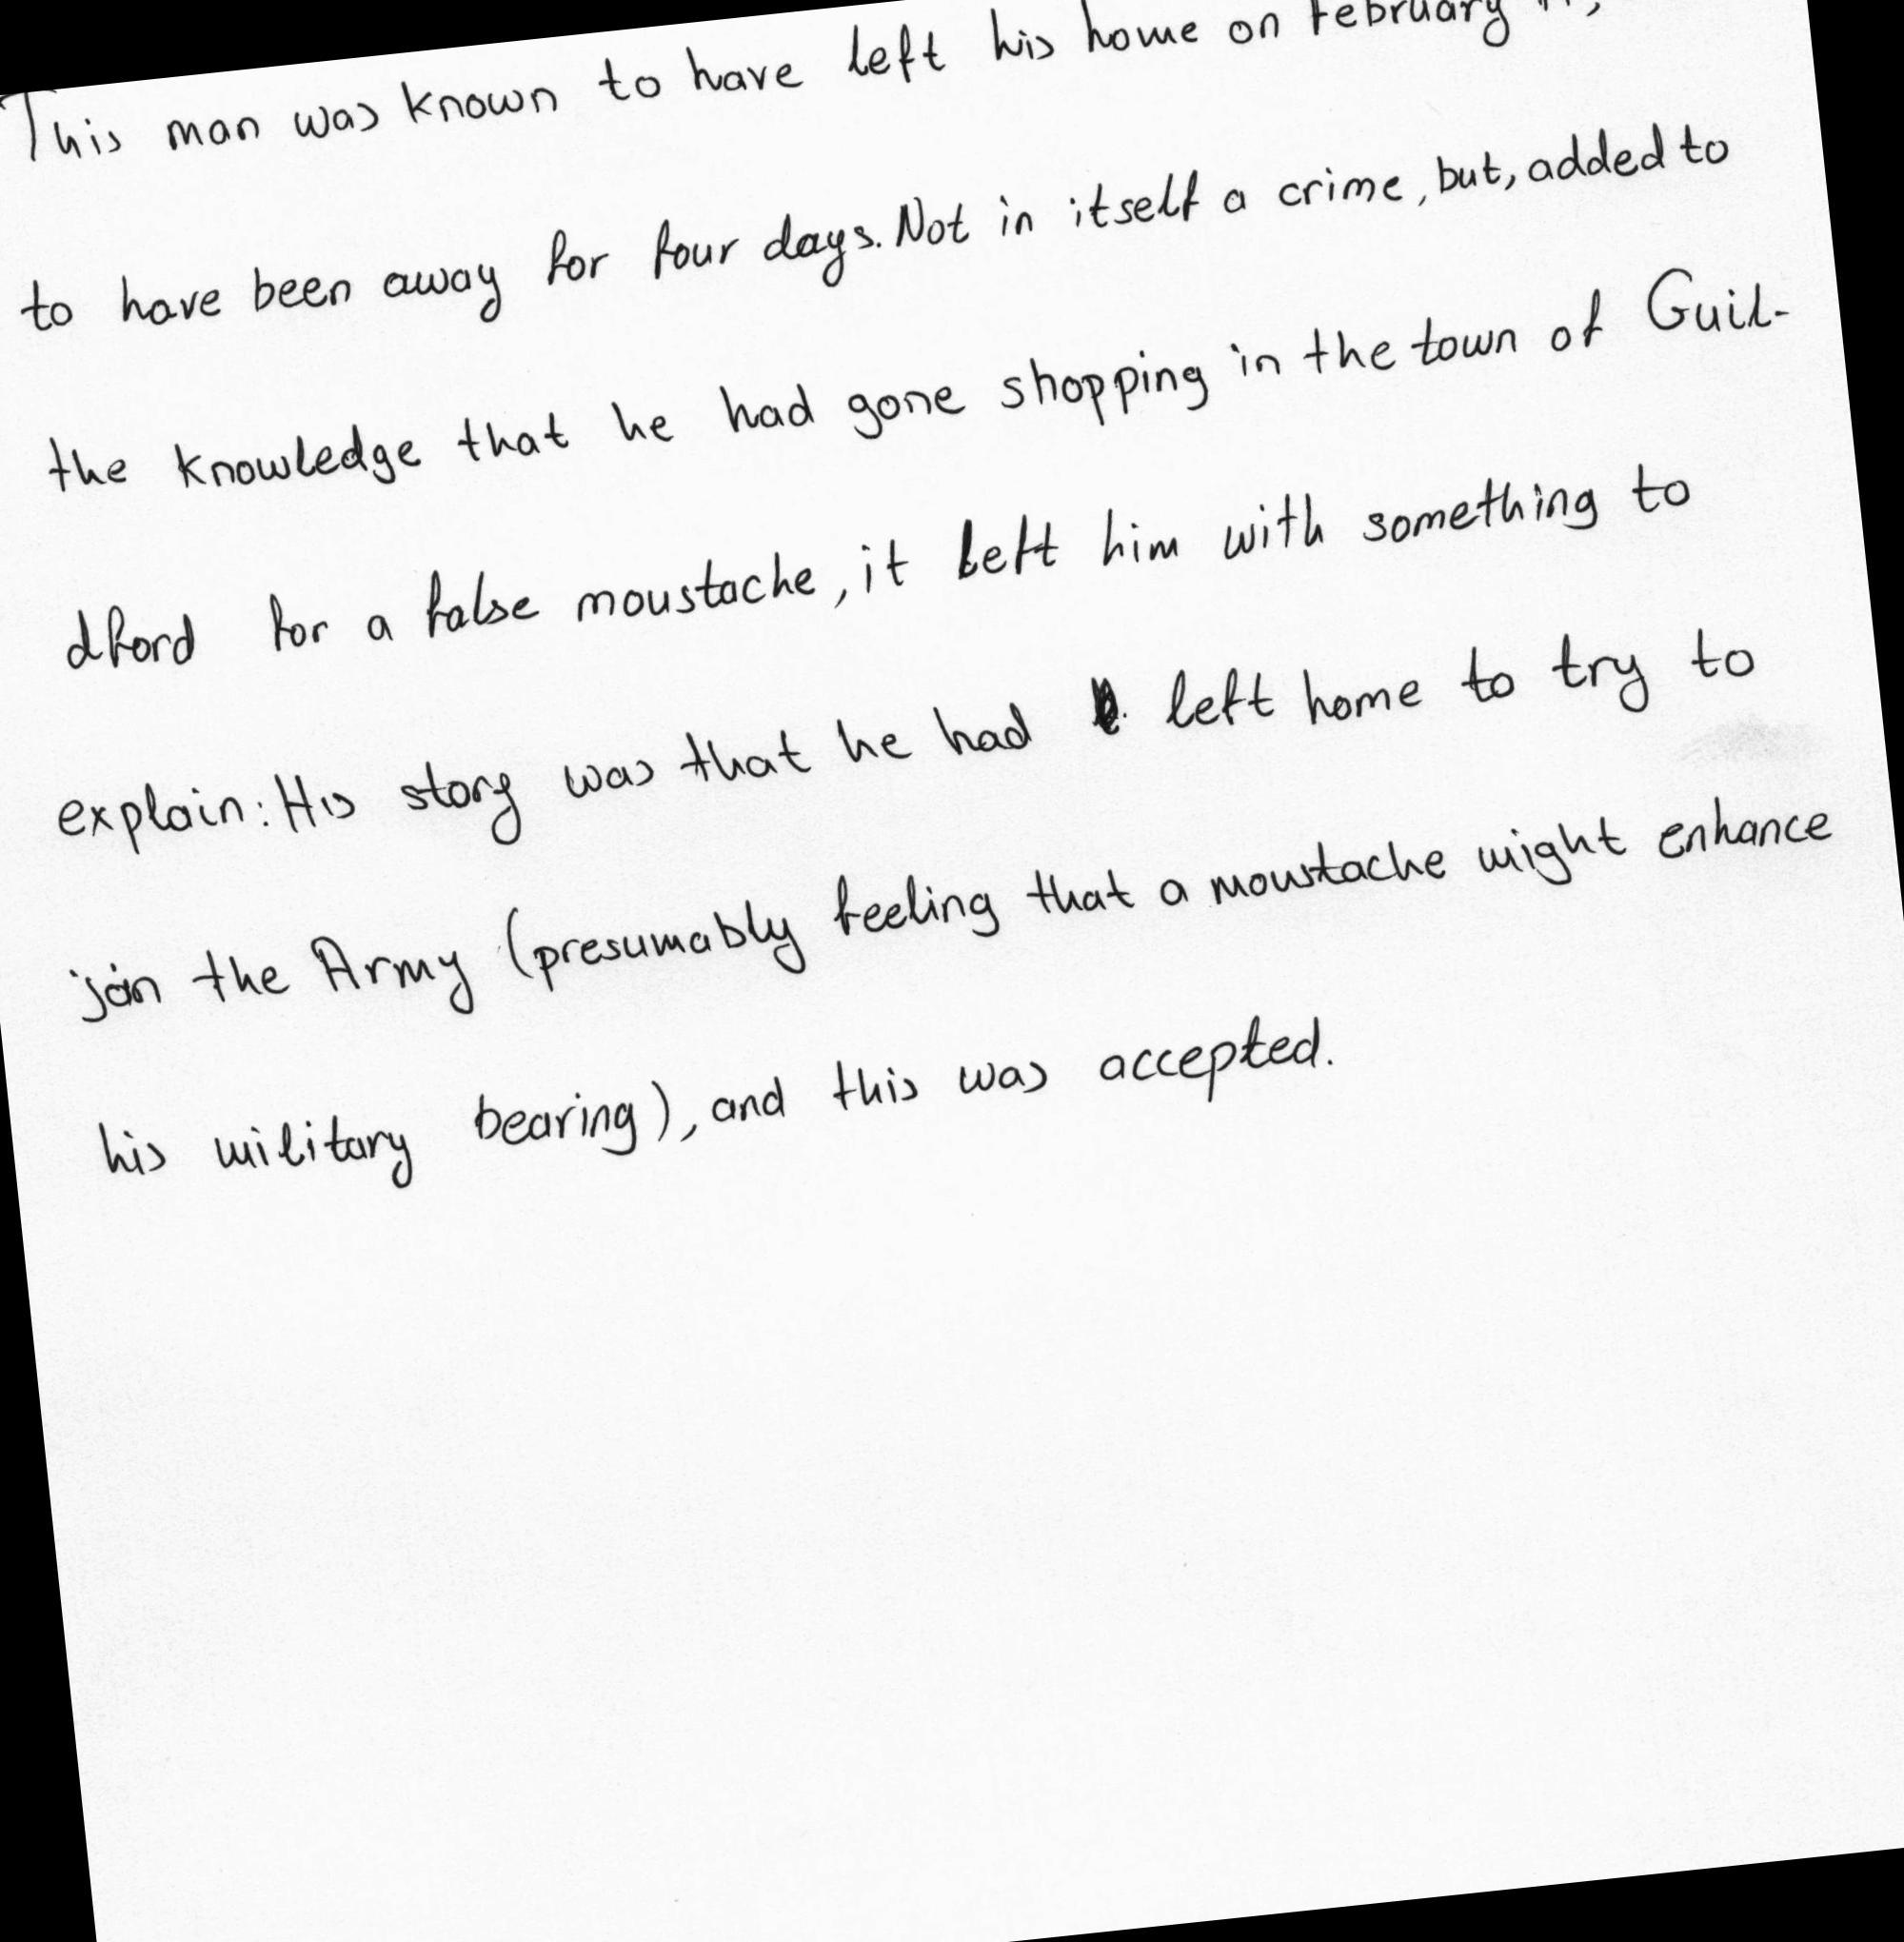 This man was known to have left his home on February
to have been away for four days. Not in itself a crime, but, added to
the knowledge that he had gone shopping in the town of Guil-
dford for a false moustache, it left him with something to
explain: His story was that he had left home to try to
join the Army (presumably feeling that a moustache might enhance
his military bearing), and this was accepted.